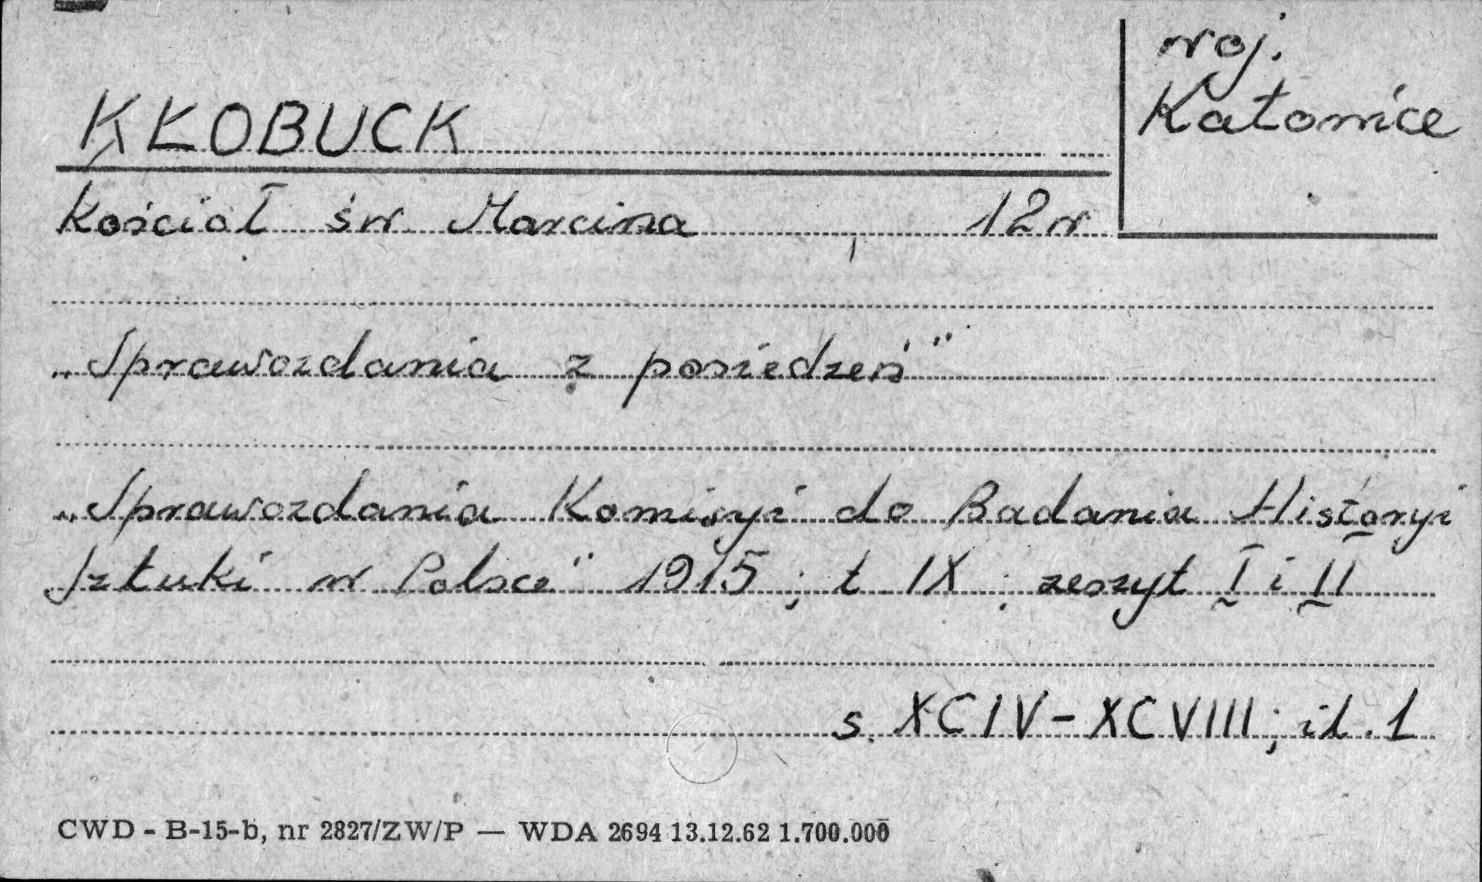 KŁOBUCK
woj.
Katowice
Kościół św Marcina 12w
„Sprawozdania z posiedzeń"
„Sprawozdania Komisyi do Badania Historyi
Sztuki w Polsce" 1915; t IX; zeszyt I i II
s. XCIV-XCVIII; il. 1
CWD - B-15-b, nr 2827/ZW/P — WDA 2694 13.12.62 1.700.000